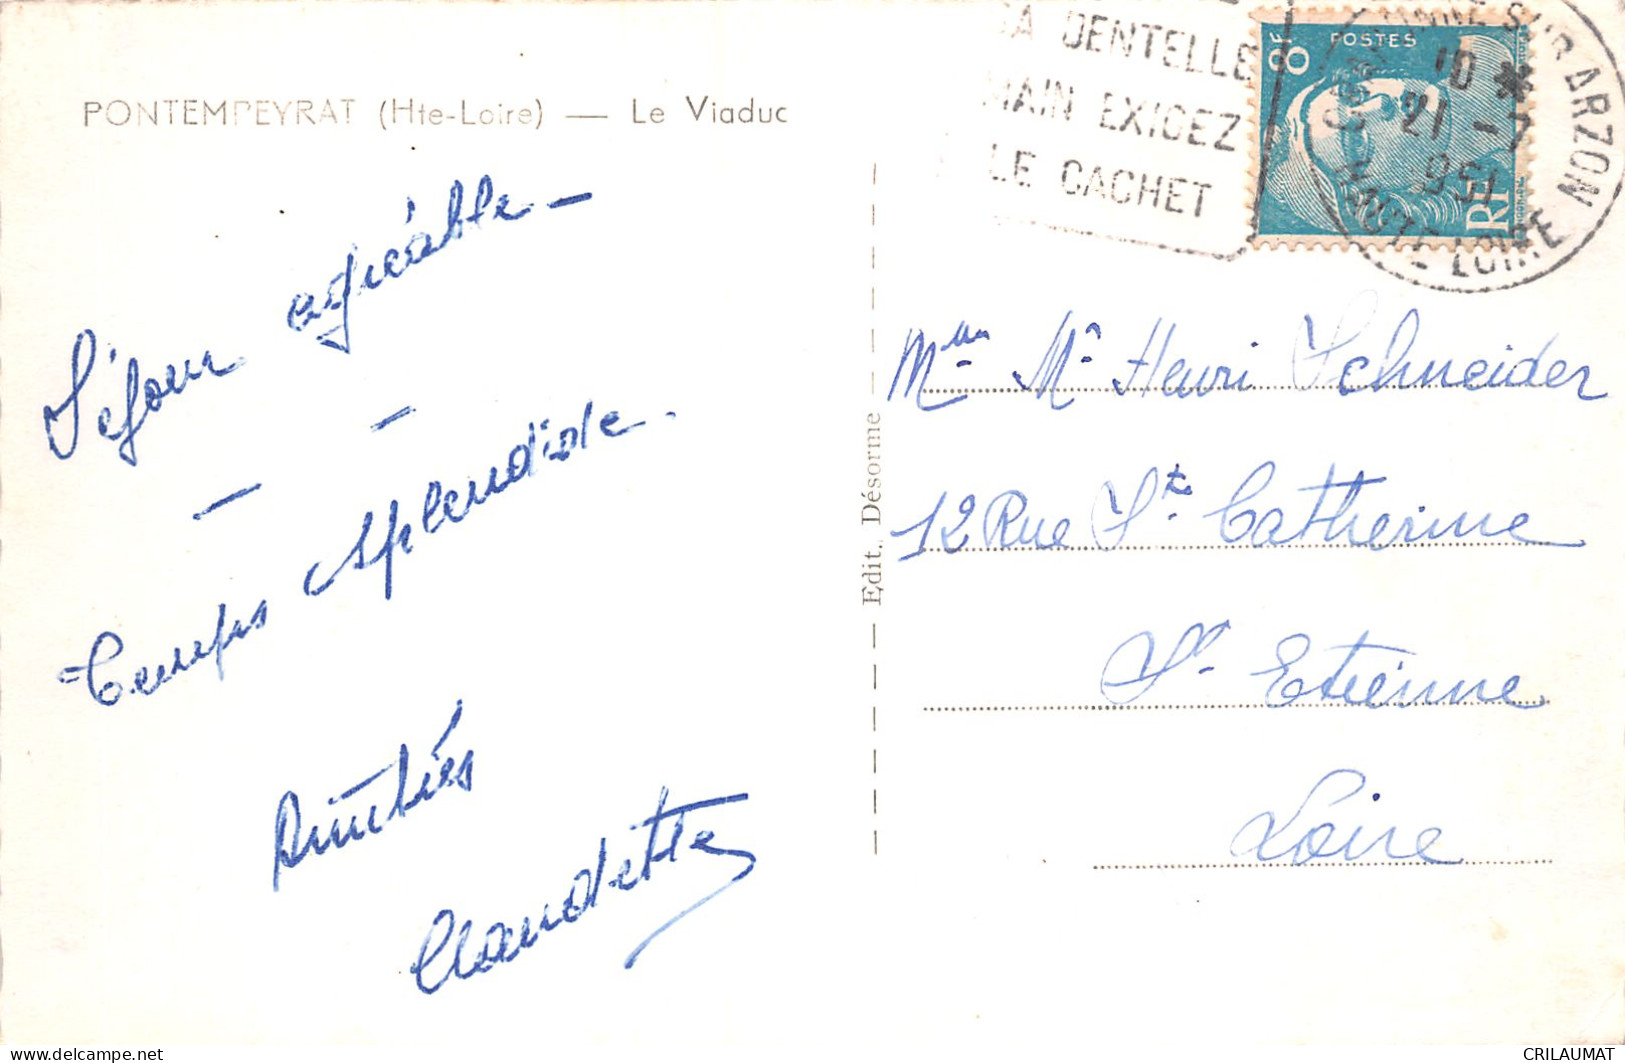 PONTEMPEYRAT (Hte-Loire) — Le Viaduc
SA DENTELLE
MAIN EXIGEZ
LE CACHET
8F
POSTES
RF
SUR ARZON
10 *
21 -7
1951
HAUTE-LOIRE
Séjour agréable –
– –
Temps splendide.
Amitiés
Claudette
Edit. Désorme
Mme Mr Henri Schneider
12 Rue St. Catherine
St. Etienne
Loire
CRILAUMAT